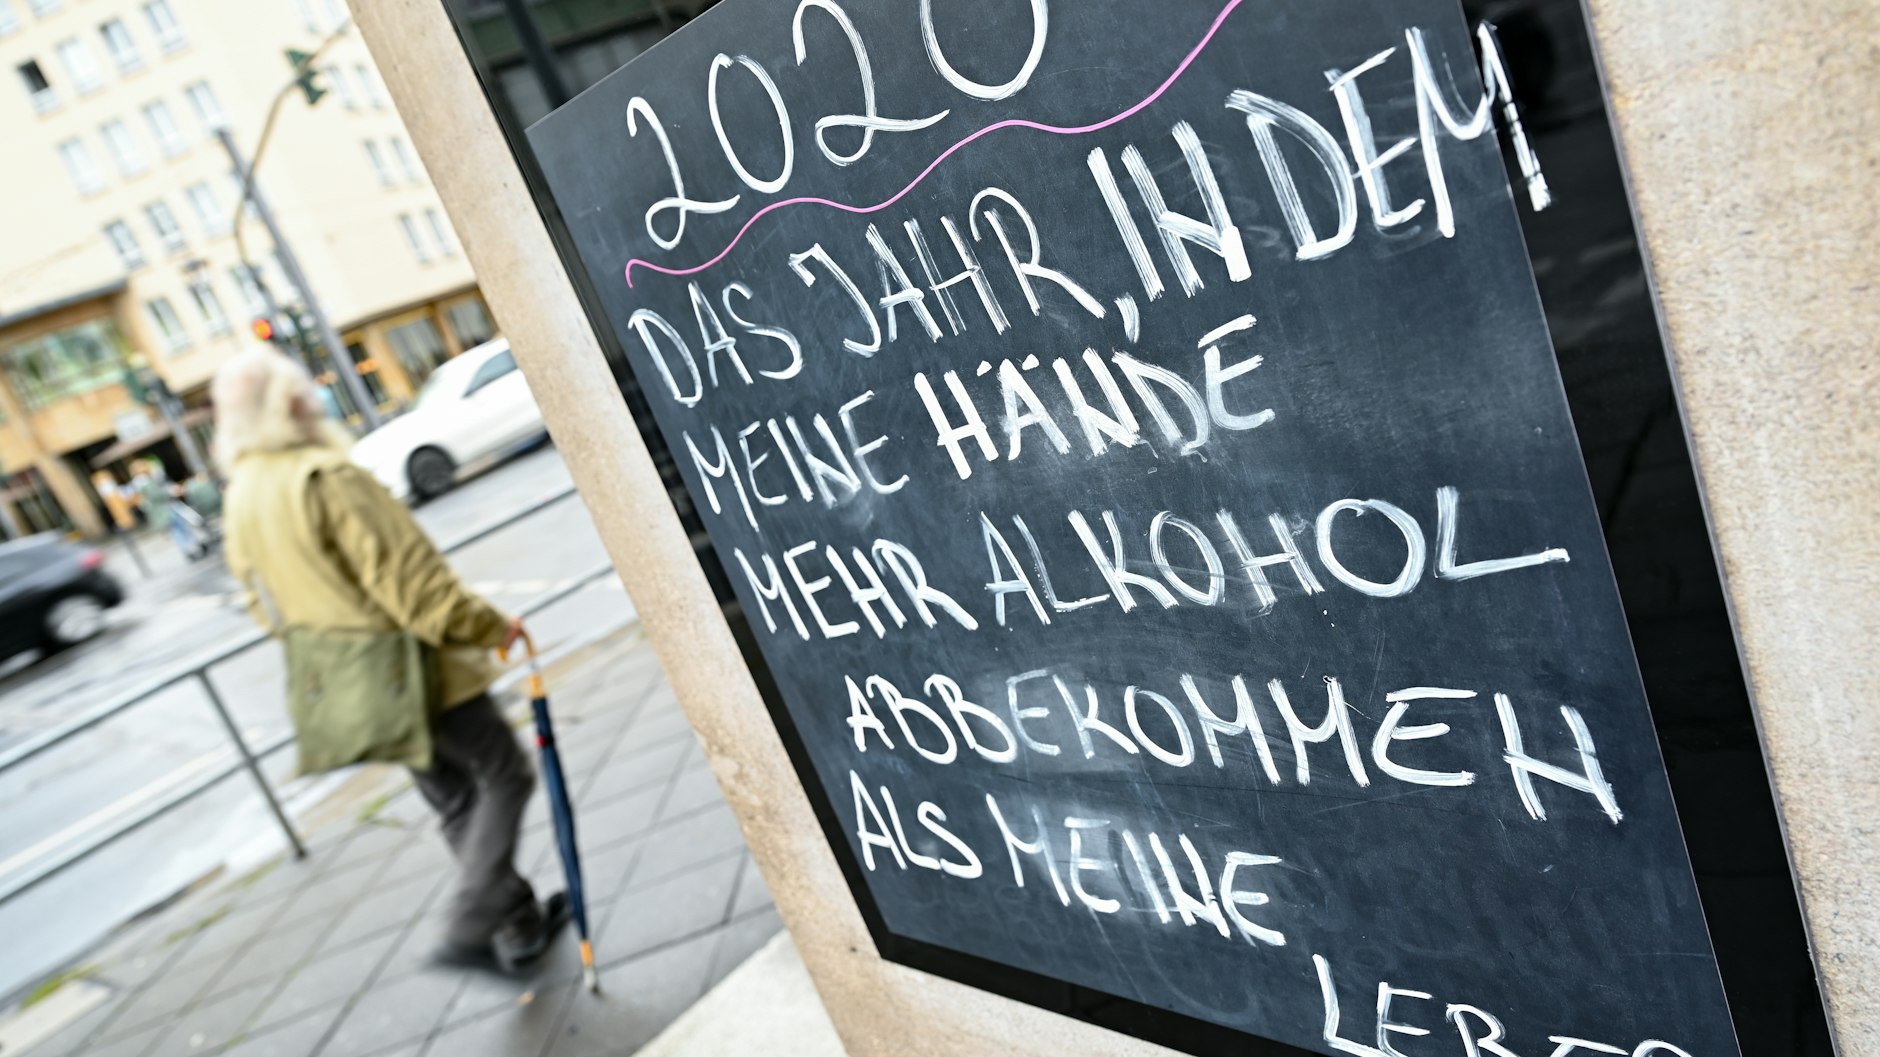 2020
DAS JAHR, IN DEM
MEINE HÄNDE
MEHR ALKOHOL
ABBEKOMMEN
ALS MEINE
LEBER